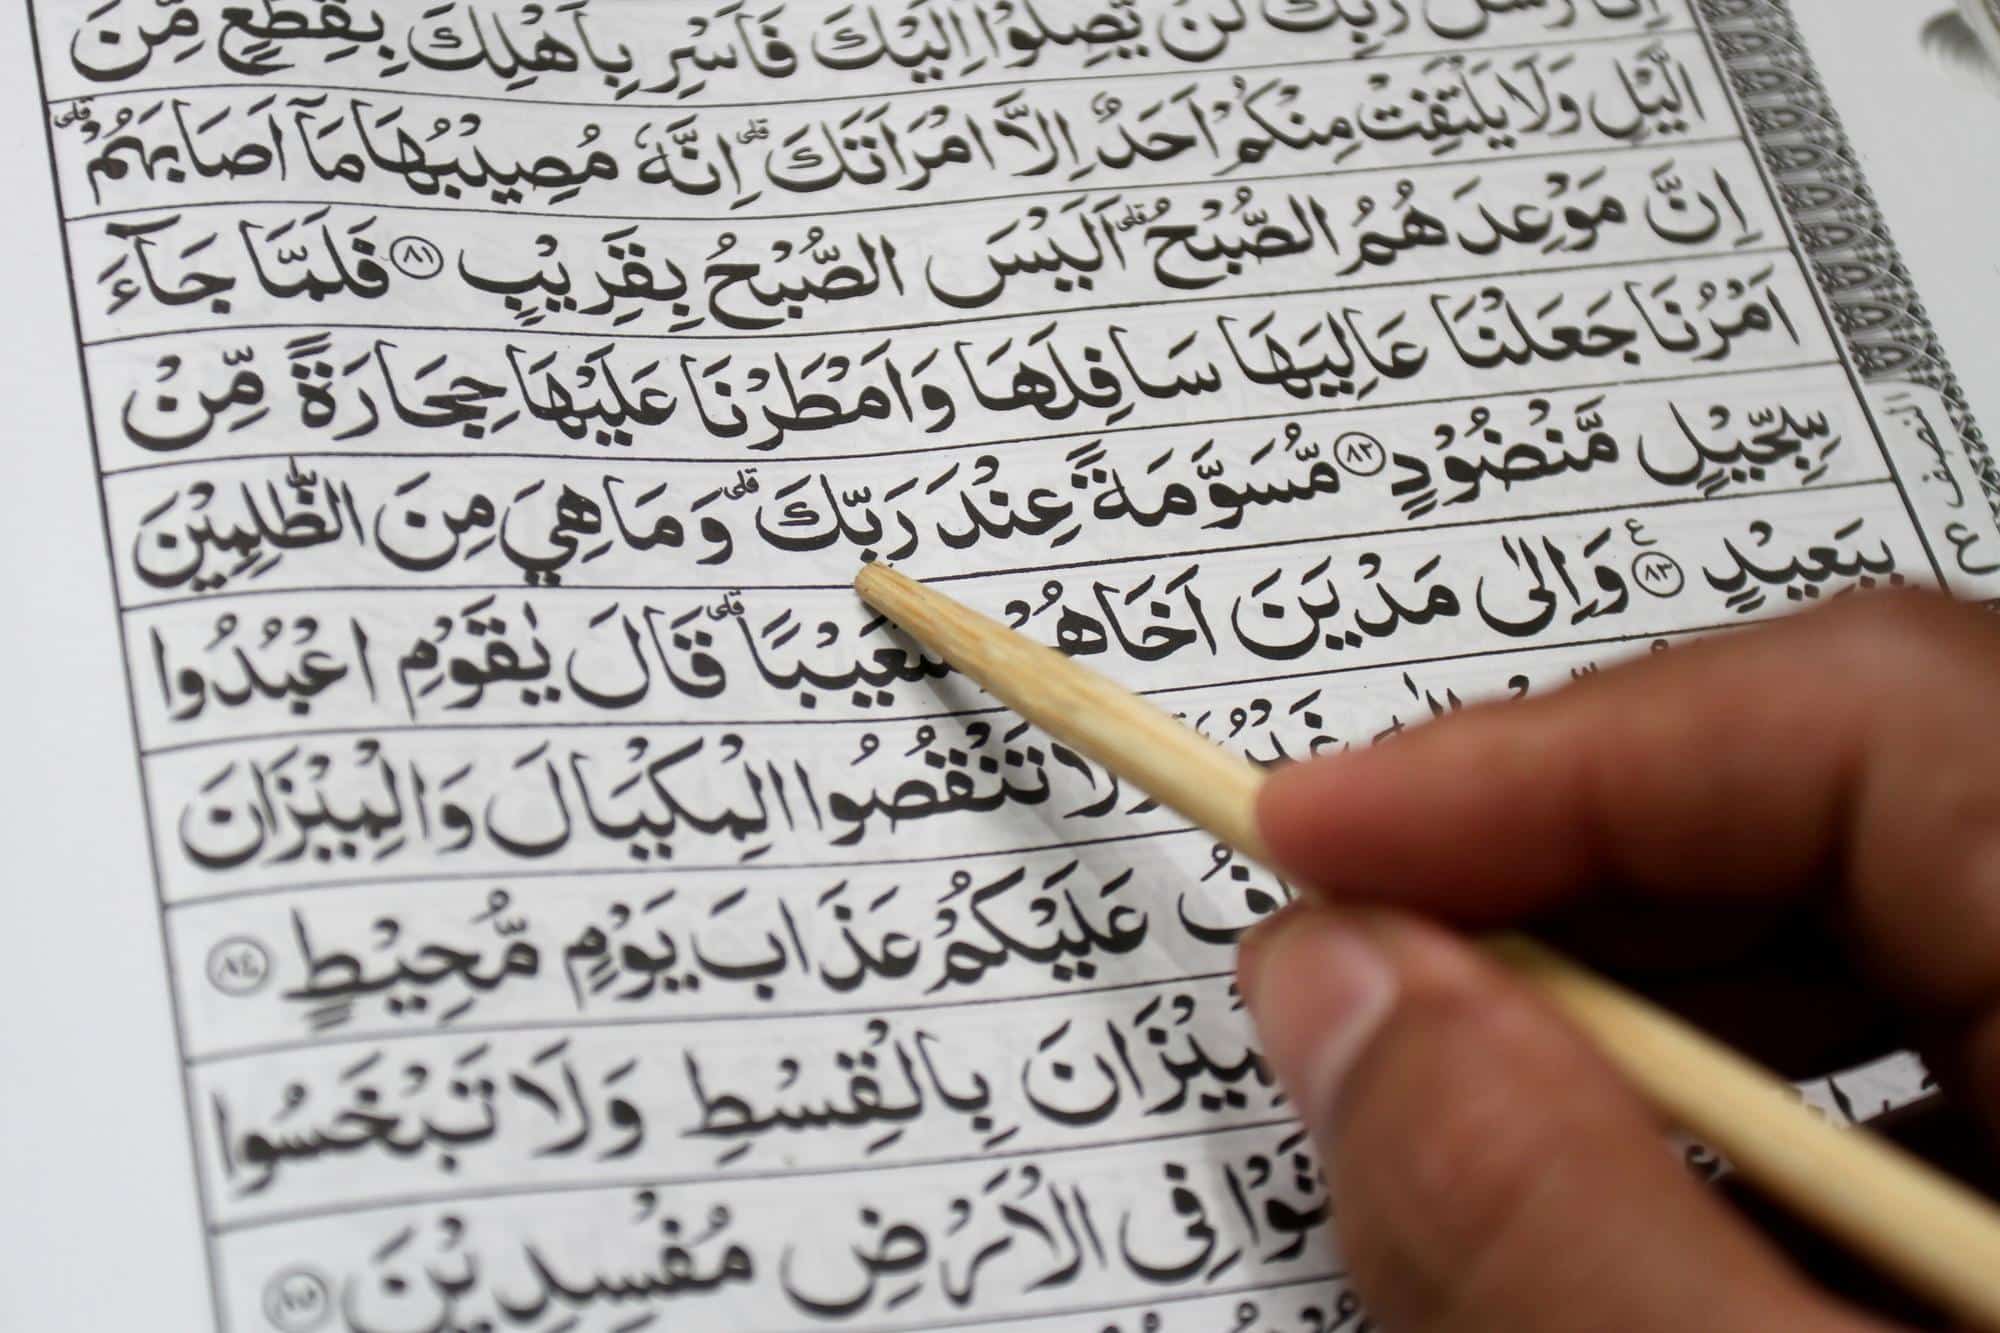 اِنَّا رُسُلُ رَبِّكَ لَنْ يَّصِلُوْۤا اِلَيْكَ فَاَسْرِ بِاَهْلِكَ بِقِطْعٍ مِّنَ
الَّيْلِ وَلَا يَلْتَفِتْ مِنْكُمْ اَحَدٌ اِلَّا امْرَاَتَكَۗ اِنَّهٗ مُصِيْبُهَا مَآ اَصَابَهُمْۗ
اِنَّ مَوْعِدَهُمُ الصُّبْحُۗ اَلَيْسَ الصُّبْحُ بِقَرِيْبٍ ٨١ فَلَمَّا جَاۤءَ
اَمْرُنَا جَعَلْنَا عَالِيَهَا سَافِلَهَا وَاَمْطَرْنَا عَلَيْهَا حِجَارَةً مِّنْ
سِجِّيْلٍ مَّنْضُوْدٍ ٨٢ مُّسَوَّمَةً عِنْدَ رَبِّكَۗ وَمَا هِيَ مِنَ الظّٰلِمِيْنَ
بِبَعِيْدٍ ٨٣ ع وَاِلٰى مَدْيَنَ اَخَاهُمْ شُعَيْبًاۗ قَالَ يٰقَوْمِ اعْبُدُوا
تَنْقُصُوا الْمِكْيَالَ وَالْمِيْزَانَ
عَلَيْكُمْ عَذَابَ يَوْمٍ مُّحِيْطٍ ٨٤
بِالْقِسْطِ وَلَا تَبْخَسُوا
فِى الْاَرْضِ مُفْسِدِيْنَ ٨٥
النصف
ع